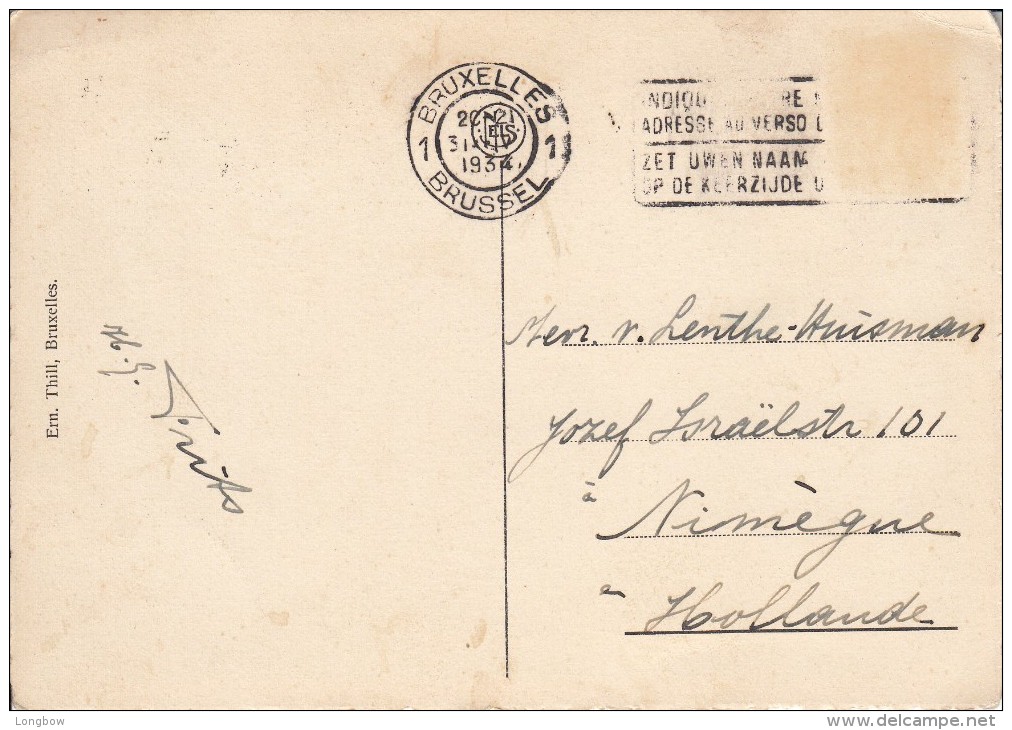 BRUXELLES
1 1
1934
BRUSSEL
NELS
ADRESSE AU VERSO
ZET UWEN NAAM
OP DE KEERZIJDE
Ern. Thill, Bruxelles.
H.G.
Frits
Mevr. v. Lenthe-Huisman
Jozef Israëlstr 101
à Nimègue
en Hollande
Longbow
delcampe.net